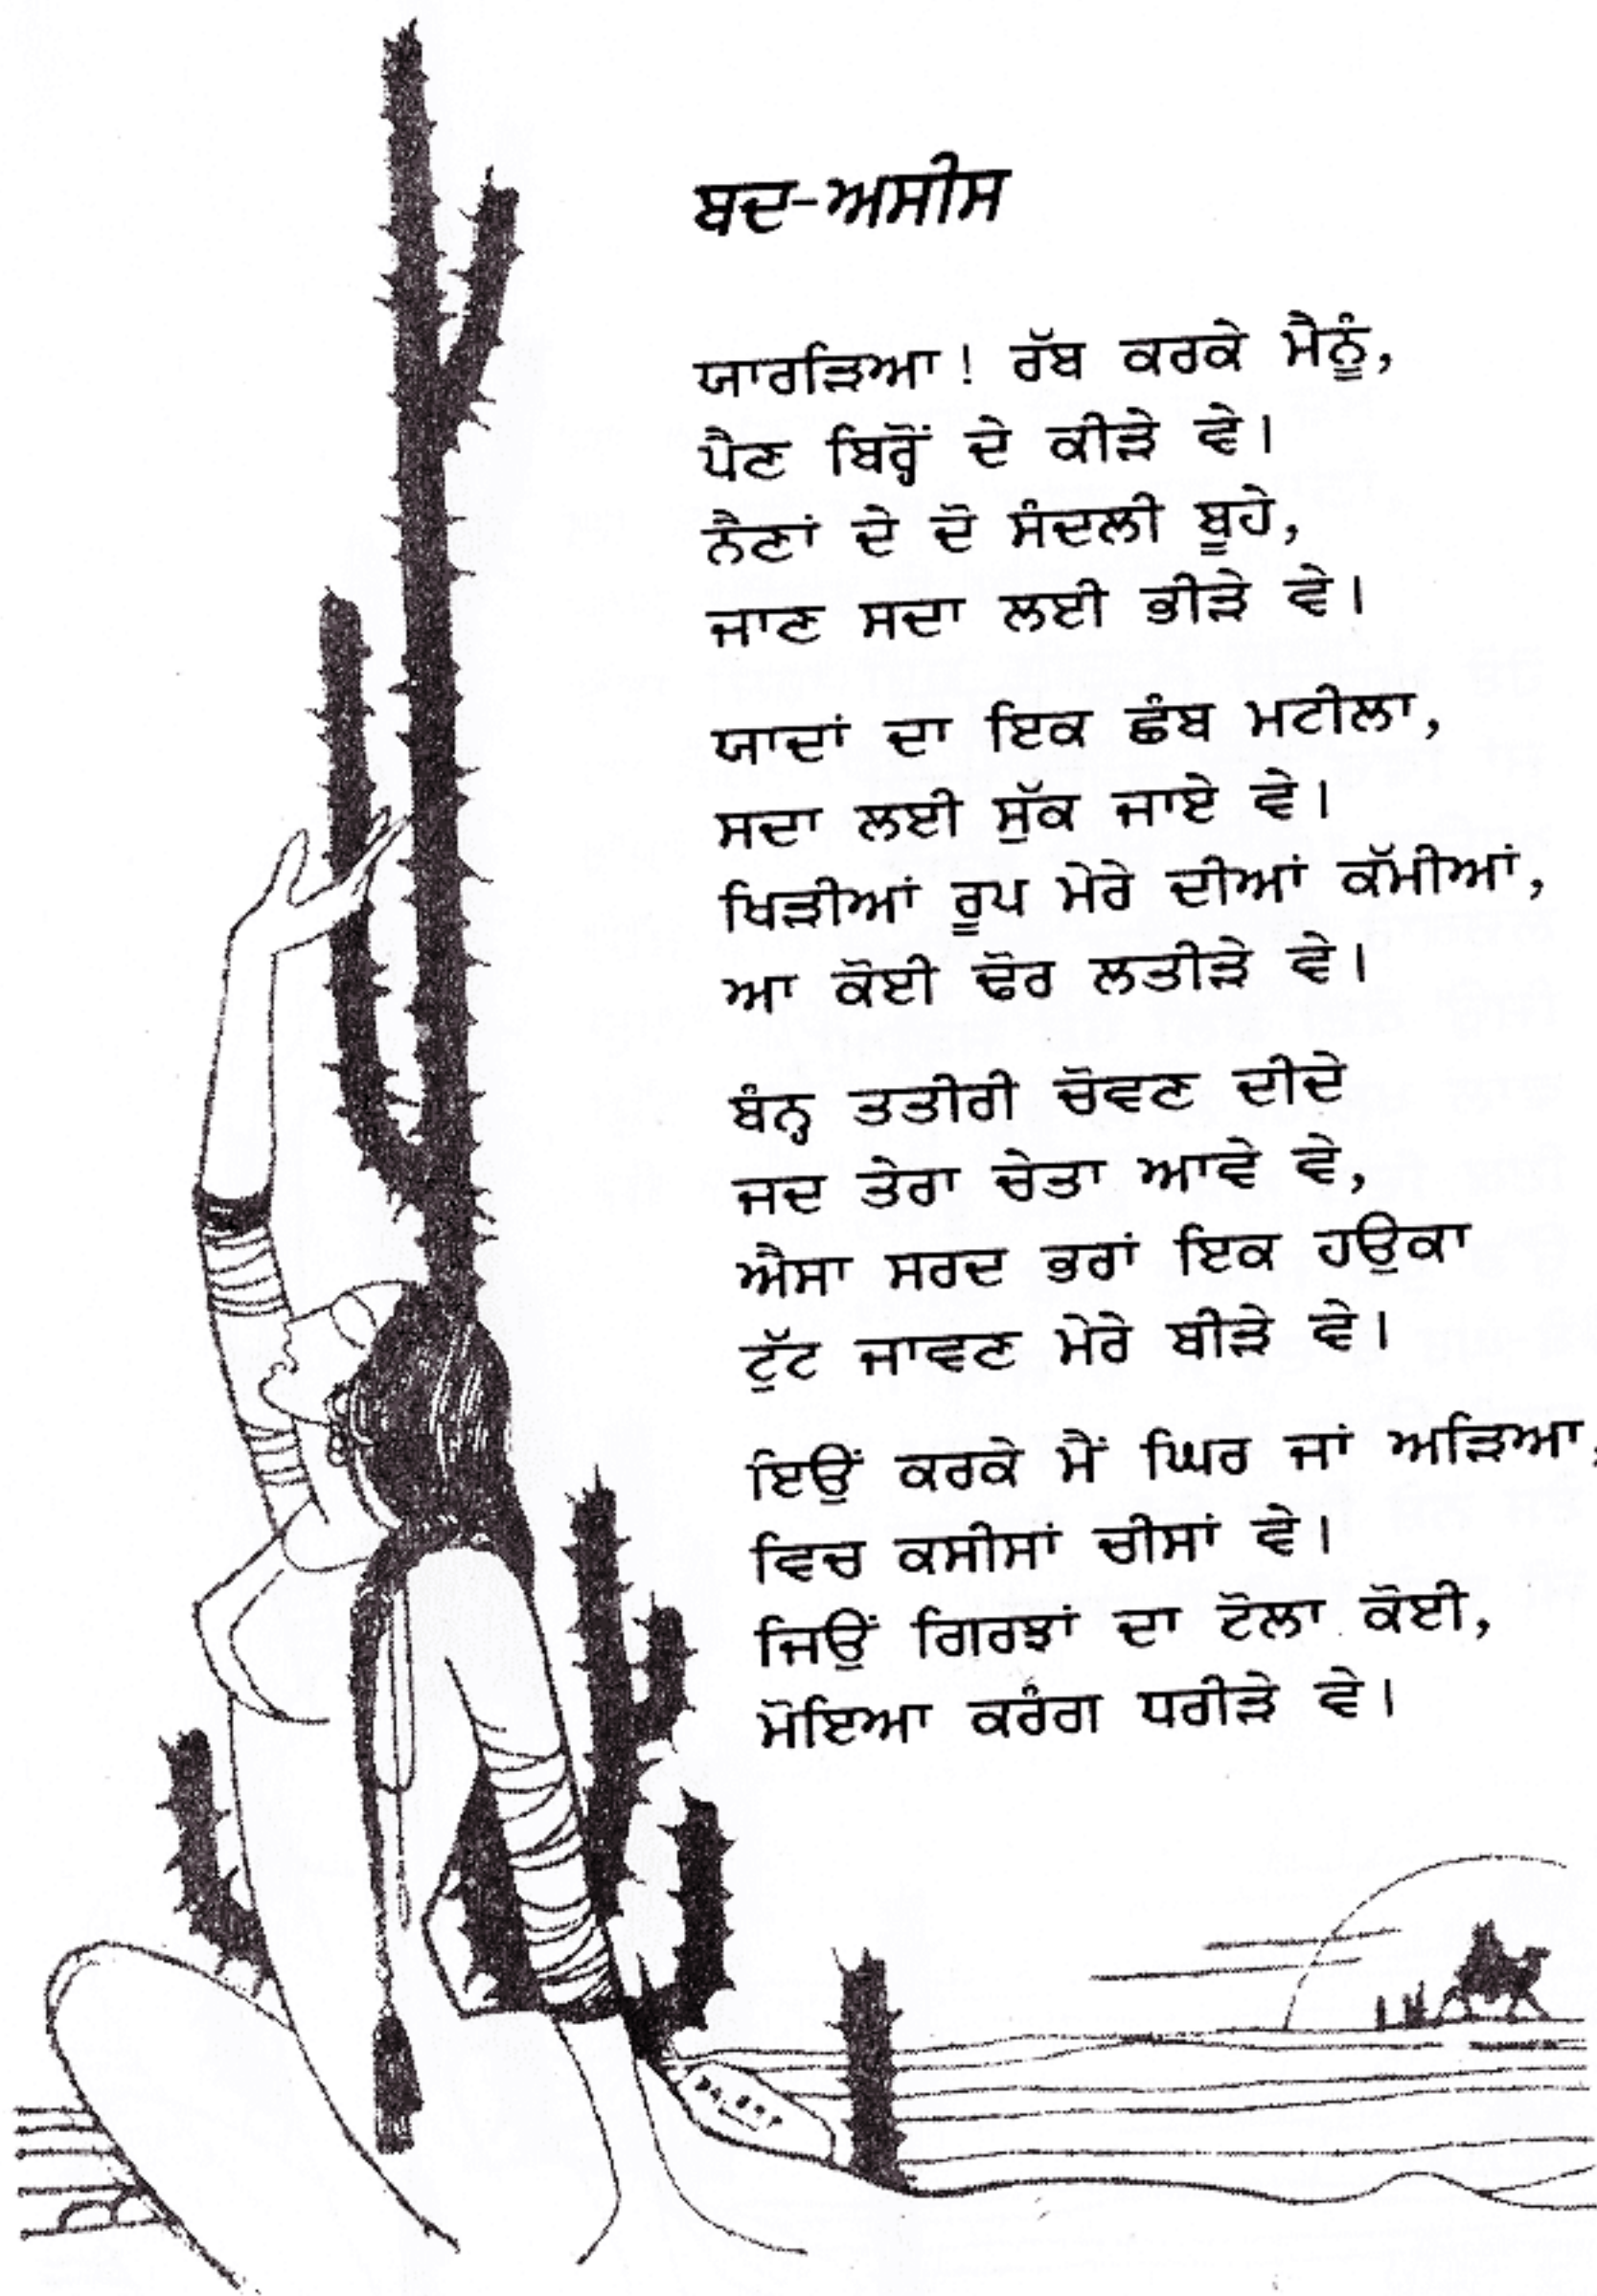 ਬਦ-ਅਸੀਸ
ਯਾਰੜਿਆ ! ਰੱਬ ਕਰਕੇ ਮੈਨੂੰ,
ਪੈਣ ਬਿਰ੍ਹੋਂ ਦੇ ਕੀੜੇ ਵੇ।
ਨੈਣਾਂ ਦੇ ਦੋ ਸੰਦਲੀ ਬੂਹੇ,
ਜਾਣ ਸਦਾ ਲਈ ਭੀੜੇ ਵੇ।
ਯਾਦਾਂ ਦਾ ਇਕ ਛੰਬ ਮਟੀਲਾ,
ਸਦਾ ਲਈ ਸੁੱਕ ਜਾਏ ਵੇ।
ਖਿੜੀਆਂ ਰੂਪ ਮੇਰੇ ਦੀਆਂ ਕੱਮੀਆਂ,
ਆ ਕੋਈ ਢੋਰ ਲਤੀੜੇ ਵੇ।
ਬੰਨ੍ਹ ਤਤੀਰੀ ਚੋਵਣ ਦੀਦੇ
ਜਦ ਤੇਰਾ ਚੇਤਾ ਆਵੇ ਵੇ,
ਐਸਾ ਸਰਦ ਭਰਾਂ ਇਕ ਹਉਕਾ
ਟੁੱਟ ਜਾਵਣ ਮੇਰੇ ਬੀੜੇ ਵੇ।
ਇਉਂ ਕਰਕੇ ਮੈਂ ਘਿਰ ਜਾਂ ਅੜਿਆ,
ਵਿਚ ਕਸੀਸਾਂ ਚੀਸਾਂ ਵੇ।
ਜਿਉਂ ਗਿਰਝਾਂ ਦਾ ਟੋਲਾ ਕੋਈ,
ਮੋਇਆ ਕਰੰਗ ਧਰੀੜੇ ਵੇ।